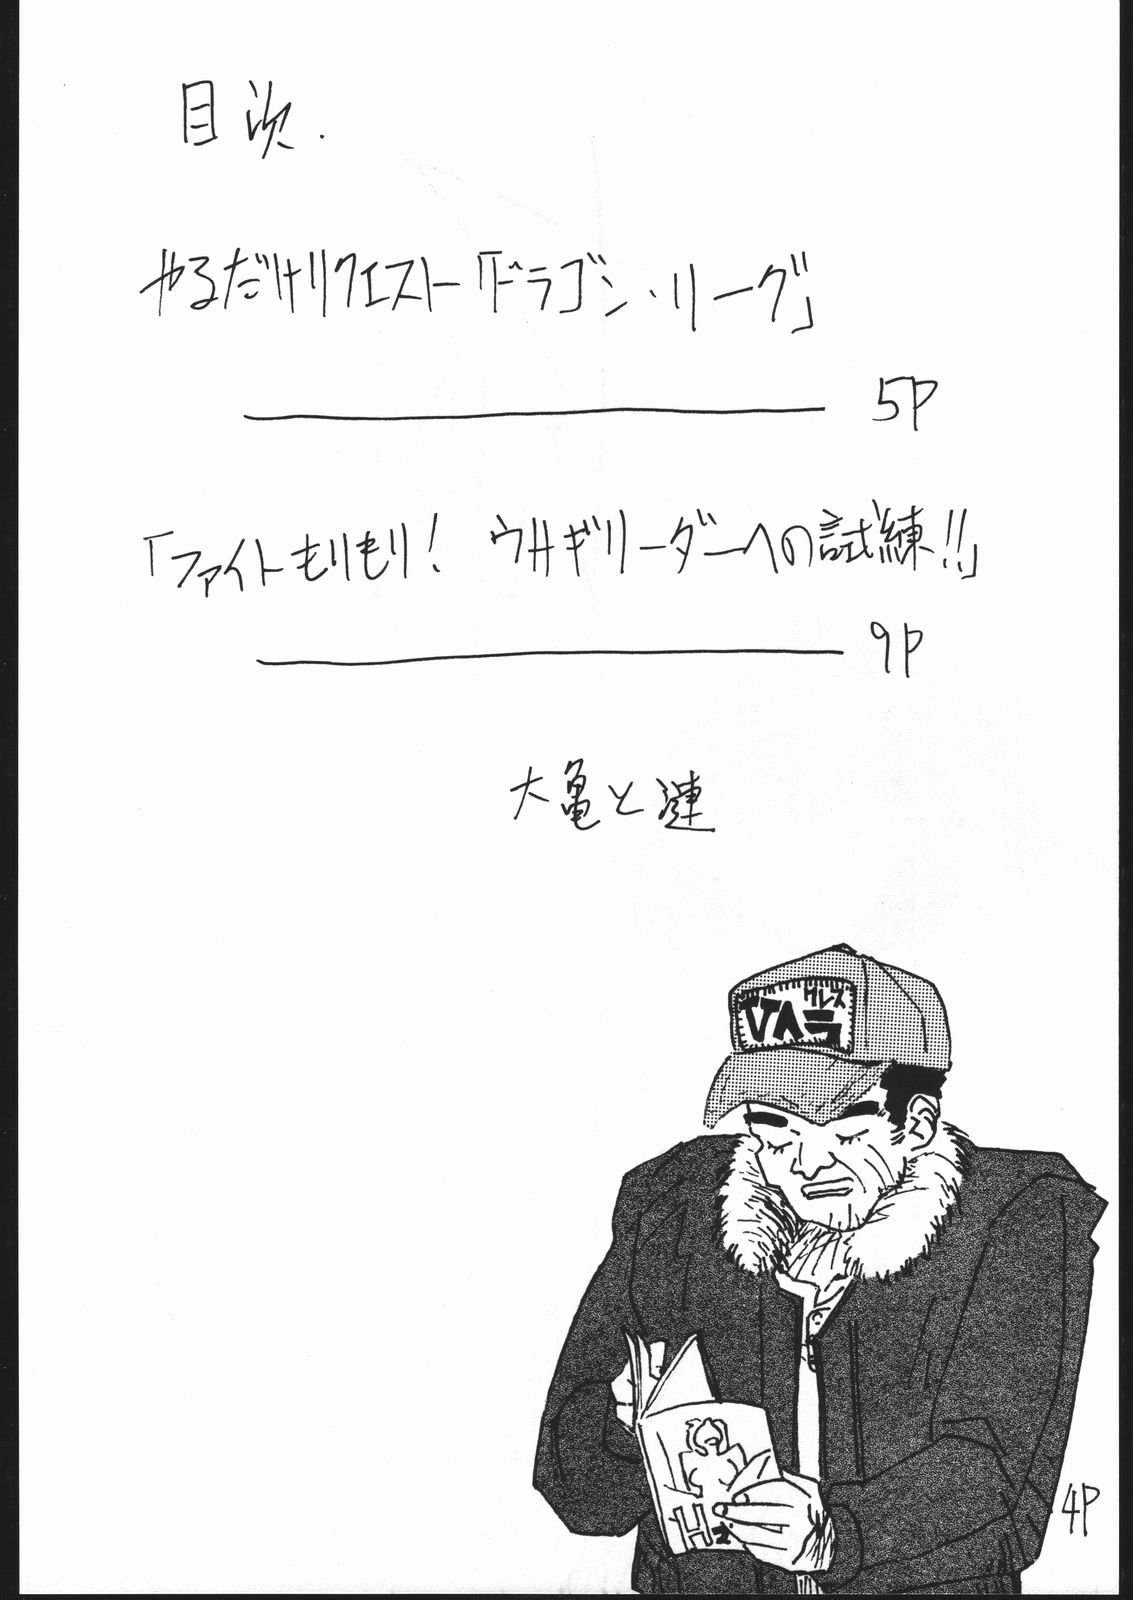 目次.
やるだけリクエスト「ドラゴン・リーグ」
5P
「ファイトもりもり! ウサギリーダーへの試練!!」
9P
大亀と漣
クレス
VAラ
H
4P